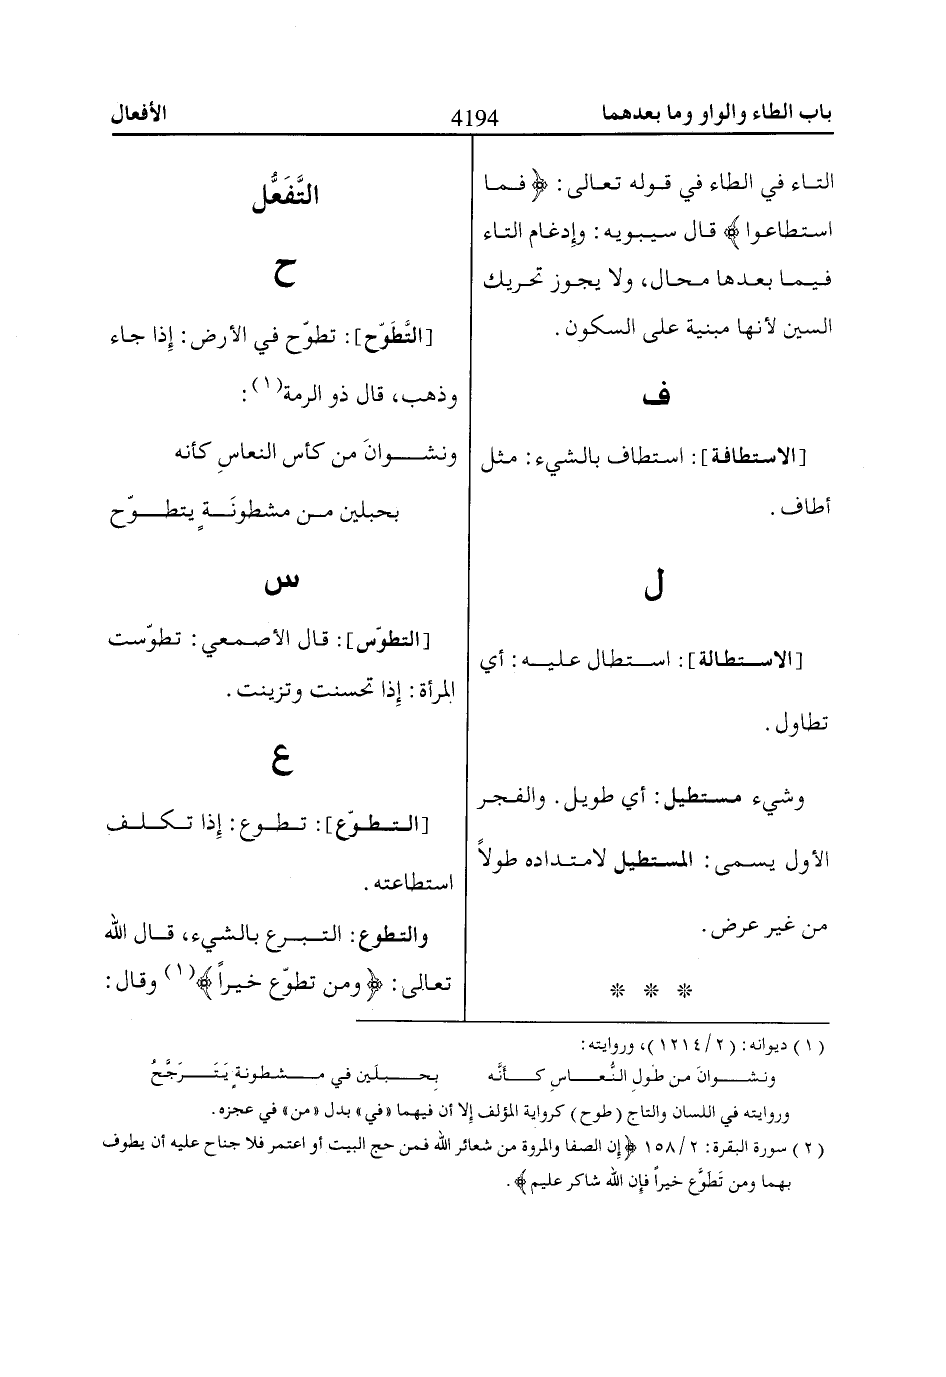 باب الطاء والواو وما بعدهما
4194
الأفعال
التاء في الطاء في قوله تعالى: ﴿ فما
استطاعوا ﴾ قال سيبويه: وإدغام التاء
فيما بعدها محال، ولا يجوز تحريك
السين لأنها مبنية على السكون.
ف
[الاستطافة]: استطاف بالشيء: مثل
أطاف.
ل
[الاستطالة]: استطال عليه: أي
تطاول.
وشيء مستطيل: أي طويل. والفجر
الأول يسمى: المستطيل لامتداده طولاً
من غير عرض.
* * *
التَّفَعُّل
ح
[التَّطَوّح]: تطوّح في الأرض: إذا جاء
وذهب، قال ذو الرمة(١):
ونشوانَ من كأس النعاسِ كأنه
بحبلين من مشطونَةٍ يتطوّح
س
[التطوّس]: قال الأصمعي: تطوّست
المرأة: إذا تحسنت وتزينت.
ع
[التطوّع]: تطوع: إذا تكلف
استطاعته.
والتطوع: التبرع بالشيء، قال الله
تعالى: ﴿ ومن تطوّع خيراً ﴾(١) وقال:
(١) ديوانه: (٢/١٢١٤)، وروايته:
ونشوانَ من طول النُّعاسِ كأنَّه بحبلين في مشطونةٍ يَتَرَجَّحُ
وروايته في اللسان والتاج (طوح) كرواية المؤلف إلا أن فيهما «في» بدل «من» في عجزه.
(٢) سورة البقرة: ٢/١٥٨ ﴿إن الصفا والمروة من شعائر الله فمن حج البيت أو اعتمر فلا جناح عليه أن يطوف
بهما ومن تَطَوَّع خيراً فإن الله شاكر عليم﴾.